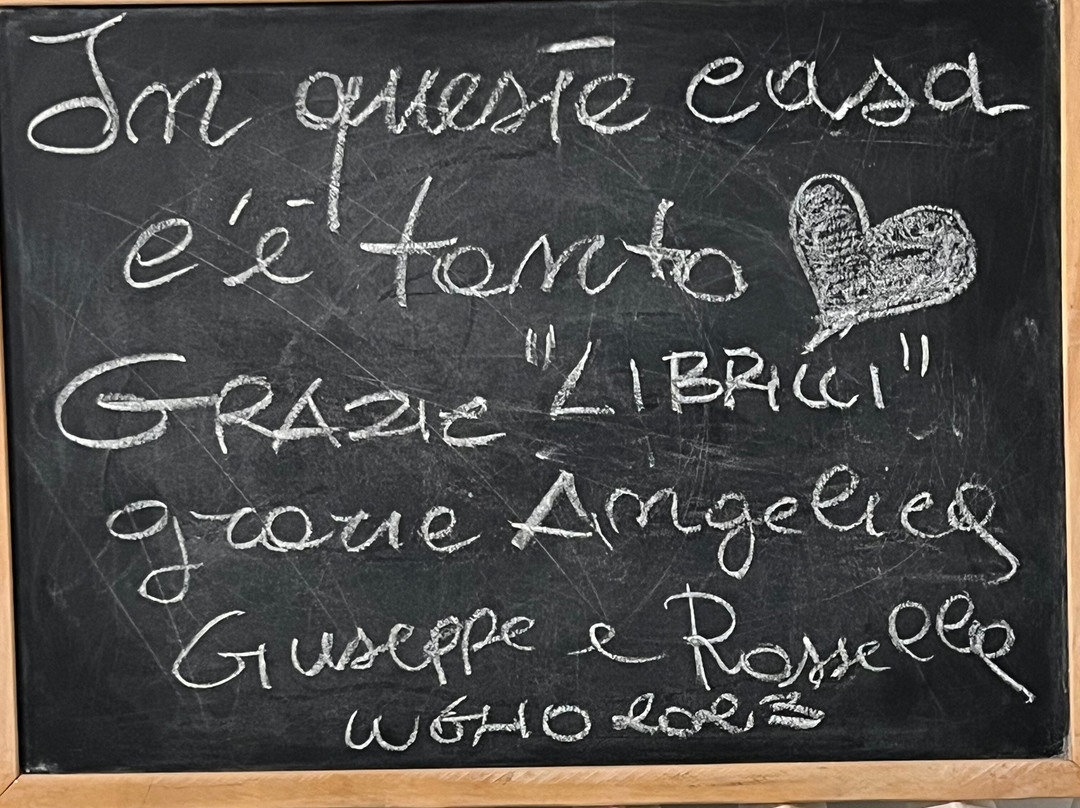 In questa casa
c'è tanto
GRAZIE "LIBRICCI"
grazie Angelica
Giuseppe e Rossella
LUGLIO 2023